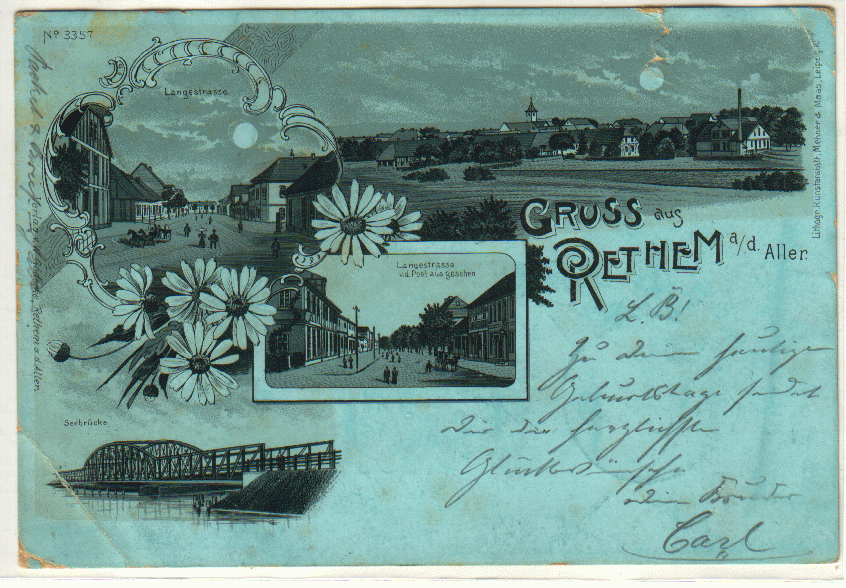 No 3357
Langestrasse.
GRUSS aus
RETHEM a/d. Aller.
Langestrasse
v.d. Post aus gesehen
Seebrücke.
Lithogr. Kunstanstalt, Mehner & Maas, Leipzig. R.
Rethem a. d. Aller.
L. B!
Zu deinem heutigen
Geburtstage sendet
Dir die herzlichsten
Glückwünsche
dein Bruder
Carl